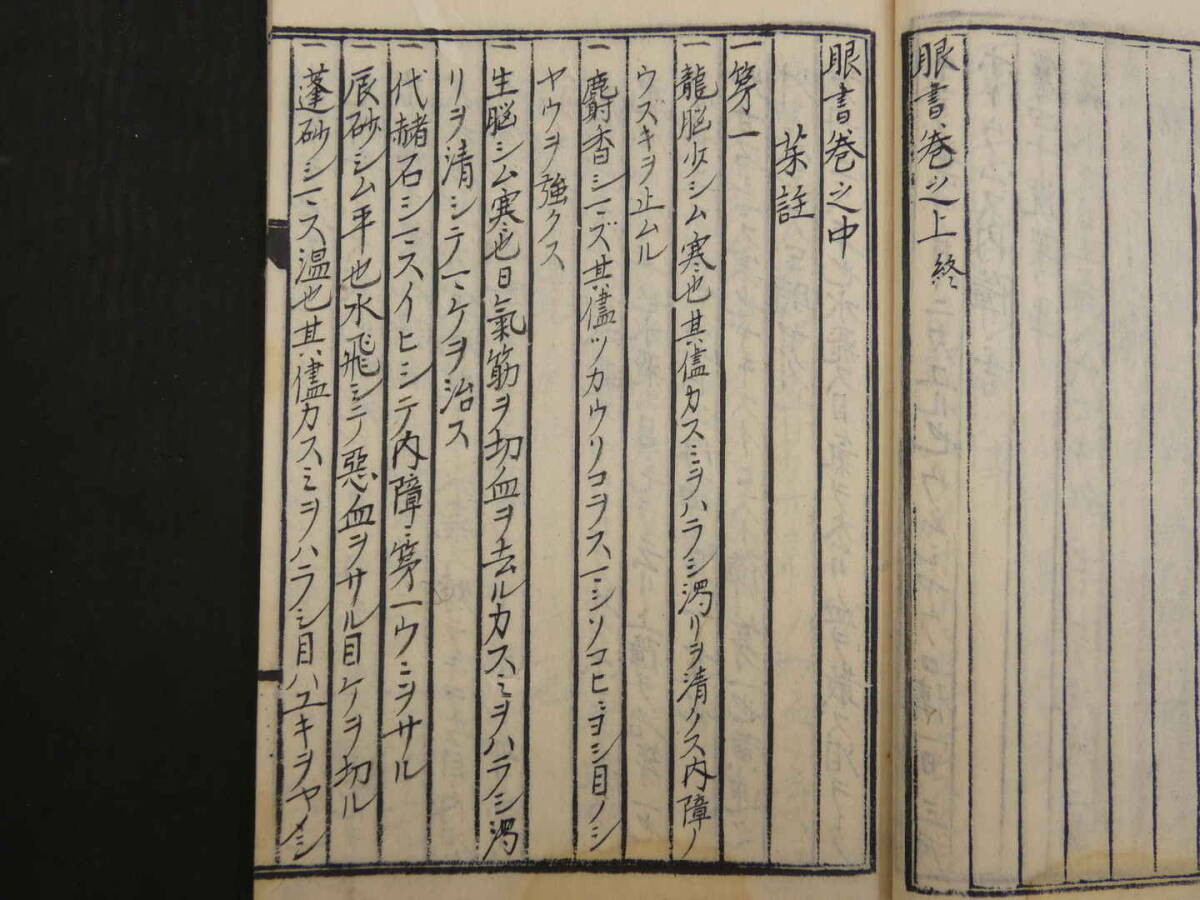 眼書巻之上終
眼書巻之中
薬註
一第一
一龍脳少シム寒也其儘カスミヲハラシ濁リヲ清クス内障ノ
ウズキヲ止ムル
一麝香シマズ其儘ツカウリコヲス シソコヒニヨシ目ノシ
ヤウヲ強クス
一生脳シム寒也日氣筋ヲ切血ヲ去ルカスミヲハラシ濁
リヲ清シテマケヲ治ス
一代赭石シマスイヒシテ内障ニ第一ウミヲサル
一辰砂シム平也水飛シテ惡血ヲサル目ケヲ切ル
一蓬砂シマス温也其儘カスミヲハラシ目ハユキヲヤメシ